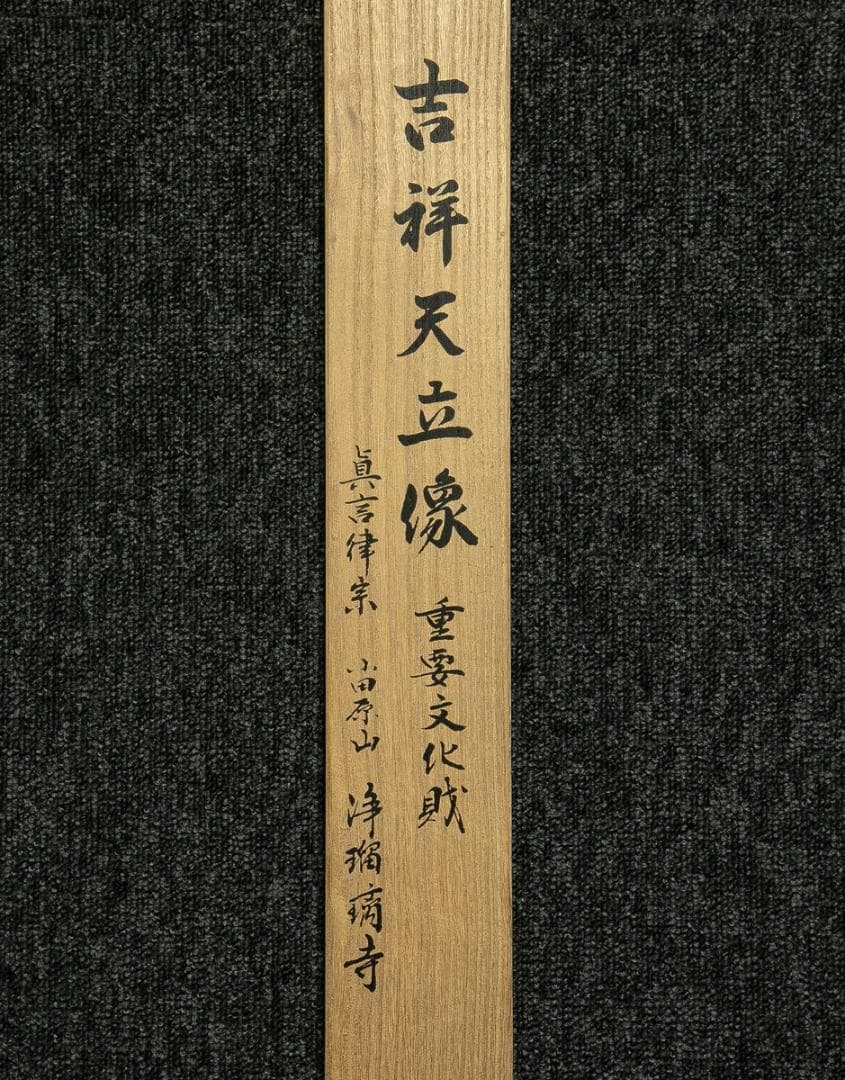 吉祥天立像 重要文化財
眞言律宗 小田原山 浄瑠璃寺